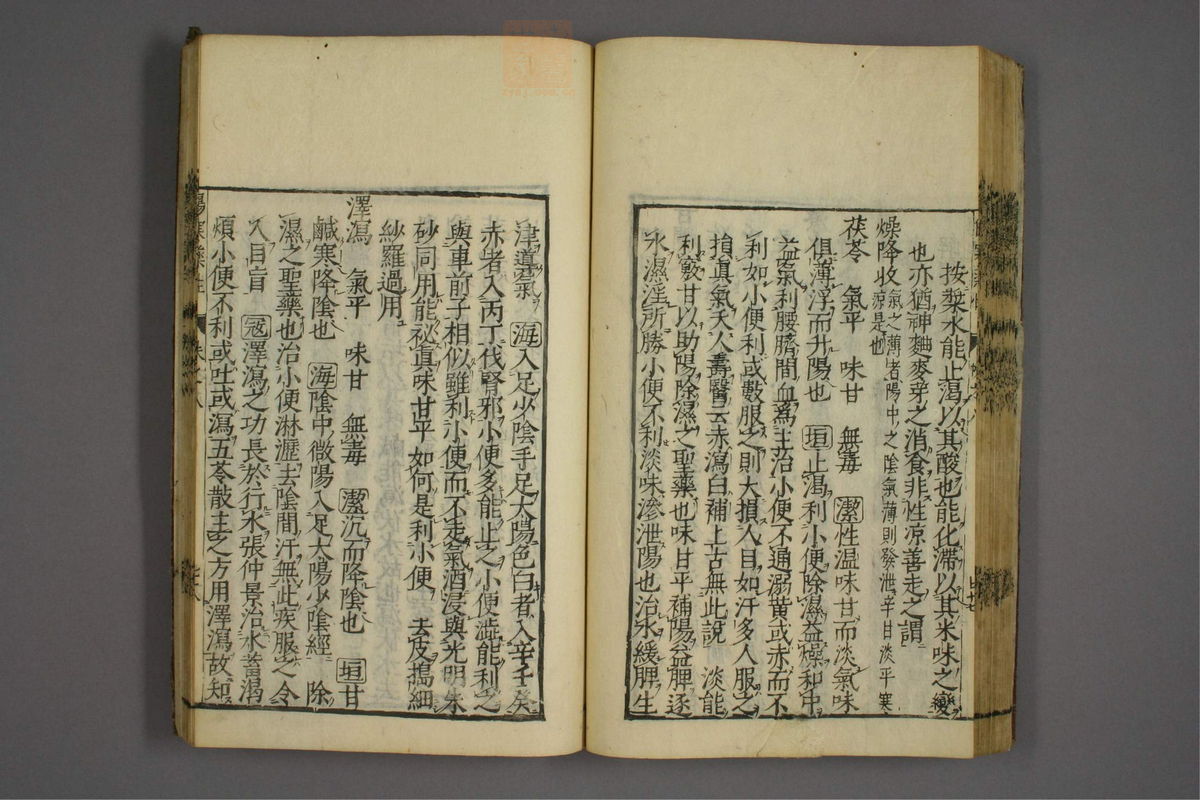 按漿水能止渴以其酸也能化滯以其米味之變
也亦猶神麯麥芽之消食非性涼善走之謂
燥降收氣之薄者陽中之陰氣薄則發泄辛甘淡平寒
涼是也
茯苓　氣平　味甘　無毒　潔性温味甘而淡氣味
俱薄浮而升陽也　垣止渴利小便除濕益燥和中
益氣利腰臍間血爲主治小便不通溺黄或赤而不
利如小便利或數服之則大損人目如汗多人服之
損眞氣夭人壽醫云赤瀉白補上古無此說　淡能
利竅甘以助陽除濕之聖藥也味甘平補陽益脾逐
水濕淫所勝小便不利淡味滲泄陽也治水緩脾生
津道氣　海入足少陰手足太陽色白者入辛壬癸
赤者入丙丁伐腎邪小便多能止之小便澁能利之
與車前子相似雖利小便而不走氣酒浸與光明朱
砂同用能祕眞味甘平如何是利小便　去皮搗細
紗羅過用
澤瀉　氣平　味甘　無毒　潔沉而降陰也　垣甘
鹹寒降陰也　海陰中微陽入足太陽少陰經　除
濕之聖藥也治小便淋瀝去陰間汗無此疾服之令
人目盲　冦澤瀉之功長於行水張仲景治水蓄渴
煩小便不利或吐或瀉五苓散主之方用澤瀉故知